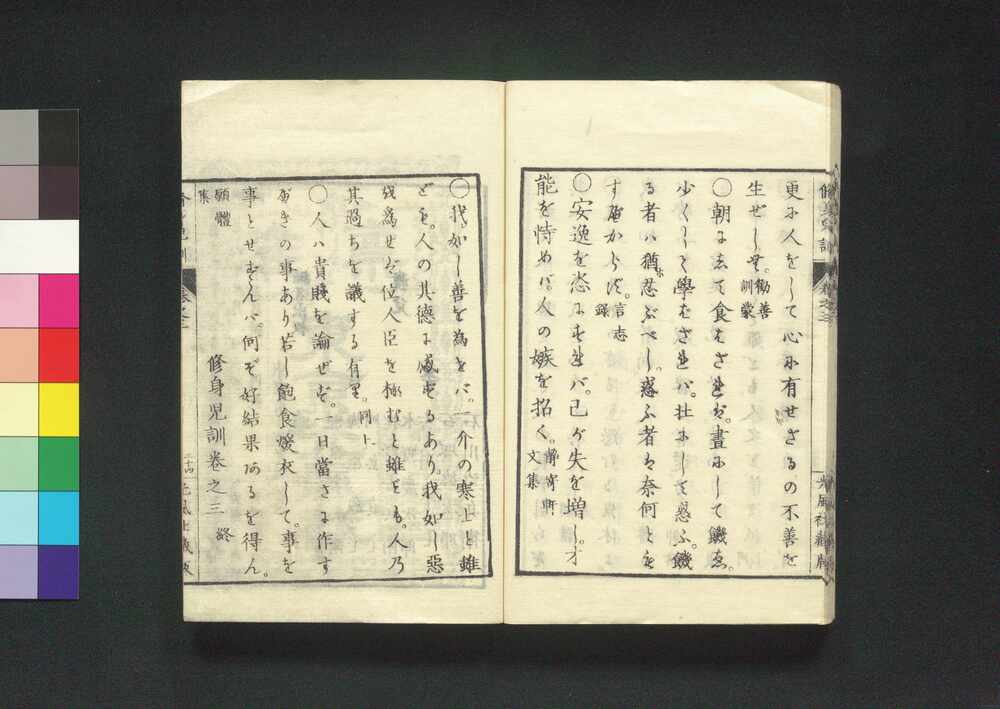 更に人をして心に有せざるの不善を
生ぜしむ。勧善訓蒙
〇朝にして食はざれば。晝にして饑ゑ。
少くして學はざれば。壮にして惑ふ。饑
る者ハ猶忍ぶべし。惑ふ者は奈何とも
す可からず。言志録
〇安逸を恣にすれバ。己が失を増し。才
能を恃めバ人の嫉を招く。
文集
〇我如し善を為さバ。一介の寒士と雖
ども。人の其德に感ずるあり。我如し惡
を為せば位人臣を極むと雖ども。人乃
其過ちを議する有里。同上
〇人ハ貴賤を論ぜず。一日當さに作す
可きの事あり若し飽食煖衣して。事を
事とせずんバ。何ぞ好結果あるを得ん。
願體集
修身児訓巻之三 終
二十四